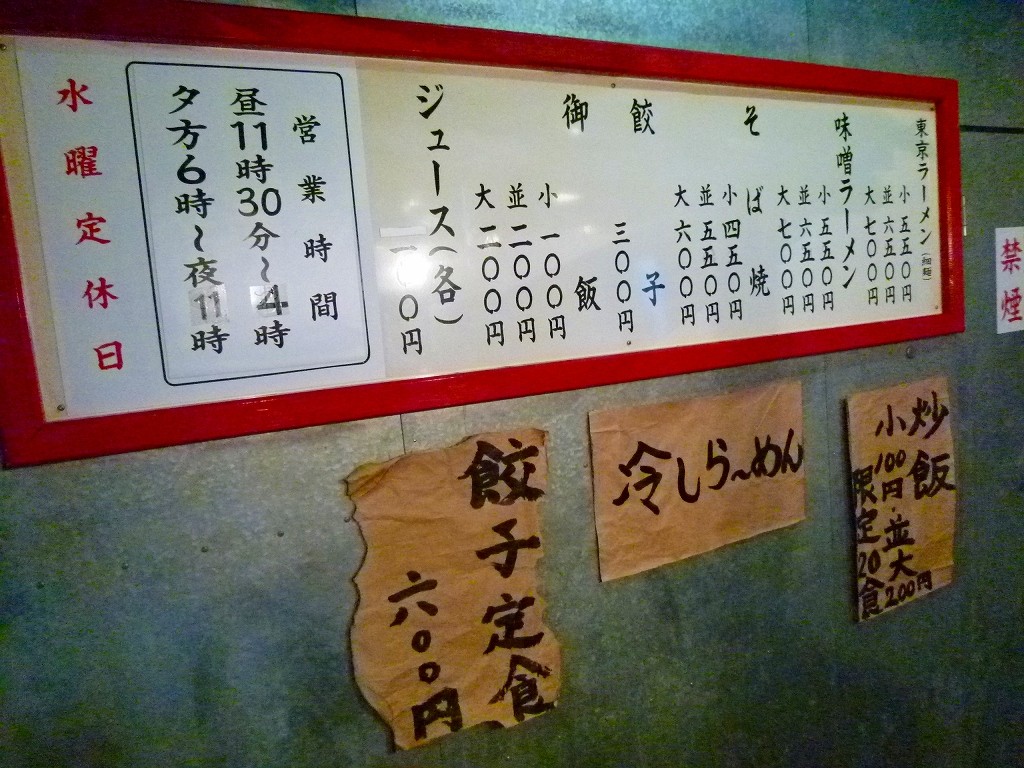 東京ラーメン(細麺)
小 五五〇円
並 六五〇円
大 七〇〇円
味噌ラーメン
小 五五〇円
並 六五〇円
大 七〇〇円
そば焼
小 四五〇円
並 五五〇円
大 六〇〇円
餃子
三〇〇円
御飯
小 一〇〇円
並 二〇〇円
大 二〇〇円
ジュース(各)
一〇〇円
営業時間
昼11時30分~4時
夕方6時~夜11時
水曜定休日
禁煙
炒飯
小100円・並大200円
限定20食
冷しら~めん
餃子定食
六〇〇円